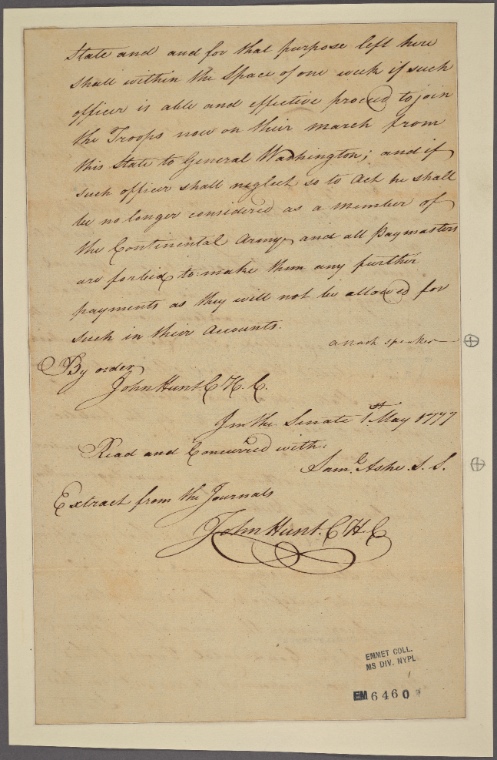 State and and for that purpose left here
shall within the Space of one week if such
officer is able and effective proceed to join
the Troops now on their march from
this State to General Washington; and if
such officer shall neglect so to Act he shall
be no longer considered as a member of
the Continental Army, and all Paymasters
are forbid to make them any further
payments as they will not be allowed for
such in their accounts.
a nash speaker
By order
John Hunt C H C.
In the Senate 1st May 1777
Read and Concurred with.
Saml. Ashe S. S.
Extract from the Journals
John Hunt. C H C
EMMET COLL.
MS DIV. NYPL
EM 6460